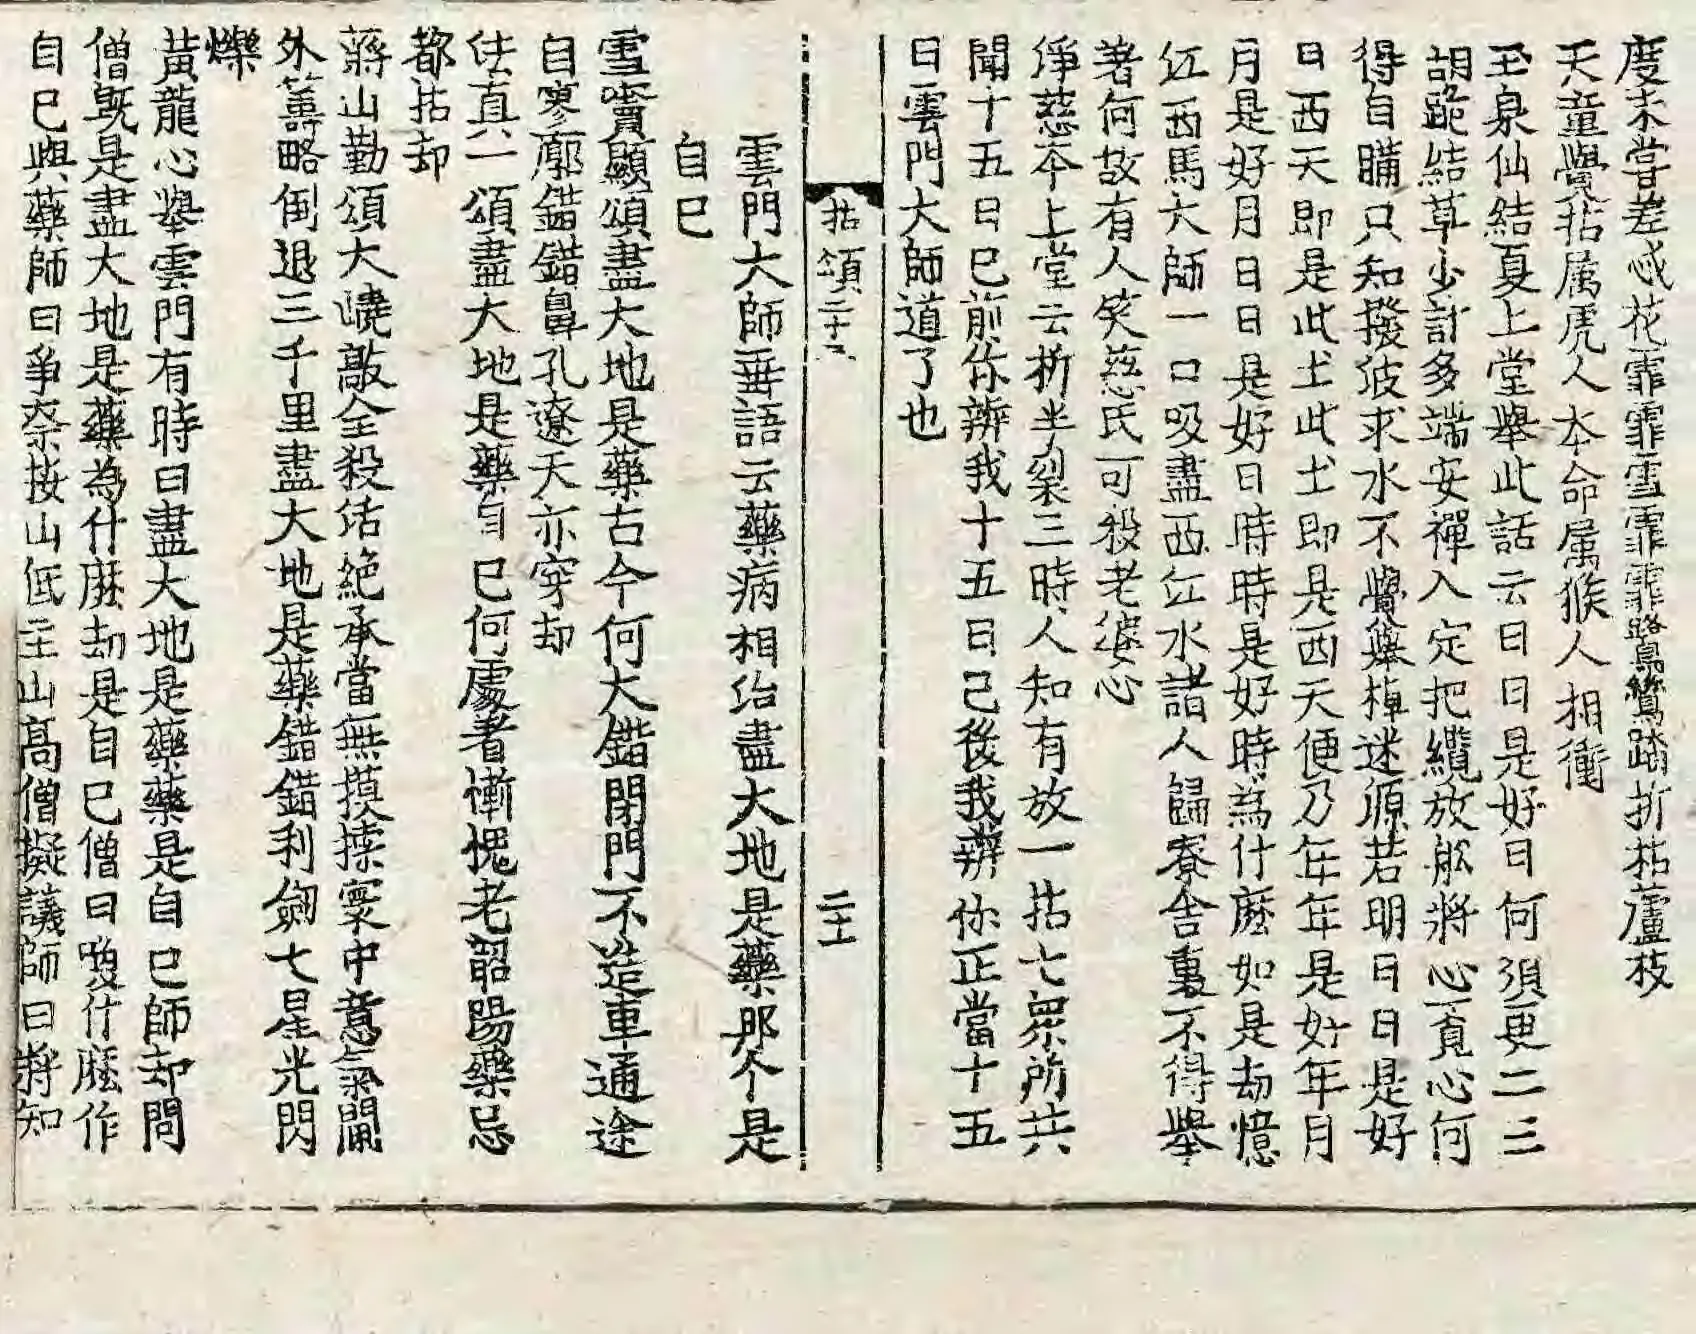 度未嘗差感花霏霏雪霏霏路鳥鸞踏折枯蘆枝
天童覺拈属虎人本命属猴人相衝
玉泉仙結夏上堂舉此話云日日是好日何須更二三
胡跪結草少計多端安禪入定把纜放舩將心覔心何
得自瞞只知撥波求水不覺舉棹迷源若明日日是好
日西天即是此土此土即是西天便乃年年是好年月
月是好月日日是好日時時是好時為什麽如是劫憶
江西馬大師一口吸盡西江水諸人歸寮舍裏不得舉
著何故有人笑慈氏可殺老婆心
淨慈本上堂云折半裂三時人知有放一拈七衆所共
聞十五日已前你辨我十五日已後我辨你正當十五
日雲門大師道了也
拈頌二十三
二十
雲門大師垂語云藥病相治盡大地是藥那个是
自己
雪竇顯頌盡大地是藥古今何大錯閉門不造車通途
自寥廓錯錯鼻孔遼天亦穿却
佉真一頌盡大地是藥自己何處著慚愧老韶陽藥忌
都拈却
蔣山勤頌大嶢敲全殺活絶承當無摸𢱢寰中意氣閫
外籌略倒退三千里盡大地是藥錯錯利劒七星光閃
爍
黃龍心舉雲門有時曰盡大地是藥藥是自己師却問
僧旣是盡大地是藥為什麽却是自己僧曰喚什麽作
自己與藥師曰爭奈按山低主山髙僧擬議師曰將知